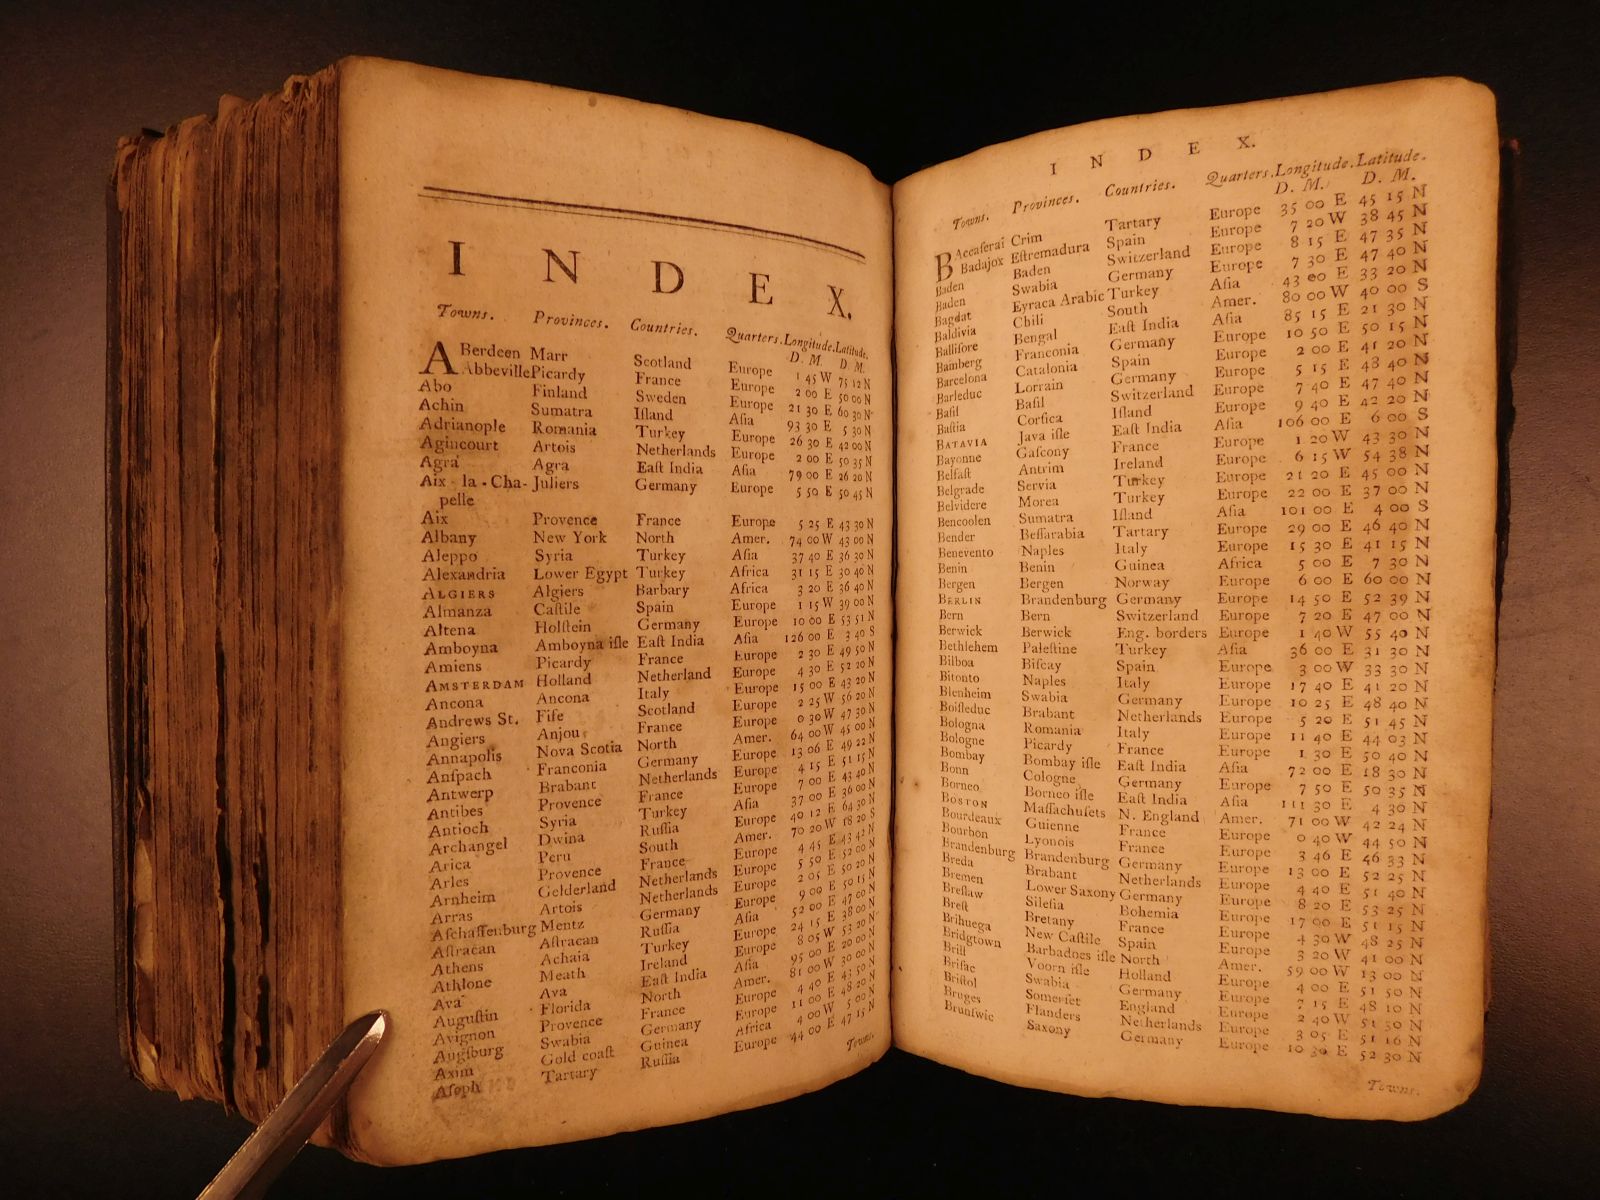 INDEX.
Towns. Provinces. Countries. Quarters. Longitude. Latitude.
D. M. D. M.
ABerdeen Marr Scotland Europe 1 45 W 75 12 N
Abbeville Picardy France Europe 2 00 E 50 00 N
Abo Finland Sweden Europe 21 30 E 60 30 N
Achin Sumatra Iſland Aſia 93 30 E 5 30 N
Adrianople Romania Turkey Europe 26 30 E 42 00 N
Agincourt Artois Netherlands Europe 2 00 E 50 35 N
Agra Agra Eaſt India Aſia 79 00 E 26 20 N
Aix-la-Cha- Juliers Germany Europe 5 50 E 50 45 N
pelle
Aix Provence France Europe 5 25 E 43 30 N
Albany New York North Amer. 74 00 W 43 00 N
Aleppo Syria Turkey Aſia 37 40 E 36 30 N
Alexandria Lower Egypt Turkey Africa 31 15 E 30 40 N
ALGIERS Algiers Barbary Africa 3 20 E 36 40 N
Almanza Caſtile Spain Europe 1 15 W 39 00 N
Altena Holſtein Germany Europe 10 00 E 53 51 N
Amboyna Amboyna iſle Eaſt India Aſia 126 00 E 3 40 S
Amiens Picardy France Europe 2 30 E 49 50 N
AMSTERDAM Holland Netherland Europe 4 30 E 52 20 N
Ancona Ancona Italy Europe 15 00 E 43 20 N
Andrews St. Fife Scotland Europe 2 25 W 56 20 N
Angiers Anjou France Europe 0 30 W 47 30 N
Annapolis Nova Scotia North Amer. 64 00 W 45 00 N
Anſpach Franconia Germany Europe 13 06 E 49 22 N
Antwerp Brabant Netherlands Europe 4 15 E 51 15 N
Antibes Provence France Europe 7 00 E 43 40 N
Antioch Syria Turkey Aſia 37 00 E 36 00 N
Archangel Dwina Ruſſia Europe 40 12 E 64 30 N
Arica Peru South Amer. 70 20 W 18 20 S
Arles Provence France Europe 4 45 E 43 42 N
Arnheim Gelderland Netherlands Europe 5 50 E 52 00 N
Arras Artois Netherlands Europe 2 05 E 50 20 N
Aſchaffenburg Mentz Germany Europe 9 00 E 50 15 N
Aſtracan Aſtracan Ruſſia Aſia 52 00 E 47 00 N
Athens Achaia Turkey Europe 24 15 E 38 00 N
Athlone Meath Ireland Europe 8 05 W 53 20 N
Ava Ava Eaſt India Aſia 95 00 E 20 00 N
Auguſtin Florida North Amer. 81 00 W 30 00 N
Avignon Provence France Europe 4 40 E 43 50 N
Augſburg Swabia Germany Europe 11 00 E 48 20 N
Axim Gold coaſt Guinea Africa 4 00 W 5 00 N
Aſoph Tartary Ruſſia Europe 44 00 E 47 15 N
Towns.
INDEX.
Towns. Provinces. Countries. Quarters. Longitude. Latitude.
D. M. D. M.
BAccaſerai Crim Tartary Europe 35 00 E 45 15 N
Badajox Eſtremadura Spain Europe 7 20 W 38 45 N
Baden Baden Switzerland Europe 8 15 E 47 35 N
Baden Swabia Germany Europe 7 30 E 47 40 N
Bagdat Eyraca Arabic Turkey Aſia 43 00 E 33 20 N
Baldivia Chili South Amer. 80 00 W 40 00 S
Balliſore Bengal Eaſt India Aſia 85 15 E 21 30 N
Bamberg Franconia Germany Europe 10 50 E 50 15 N
Barcelona Catalonia Spain Europe 2 00 E 41 20 N
Barleduc Lorrain Germany Europe 5 15 E 48 40 N
Baſil Baſil Switzerland Europe 7 40 E 47 40 N
Baſtia Corſica Iſland Europe 9 40 E 42 20 N
BATAVIA Java iſle Eaſt India Aſia 106 00 E 6 00 S
Bayonne Gaſcony France Europe 1 20 W 43 30 N
Belfaſt Antrim Ireland Europe 6 15 W 54 38 N
Belgrade Servia Turkey Europe 21 20 E 45 00 N
Belvidere Morea Turkey Europe 22 00 E 37 00 N
Bencoolen Sumatra Iſland Aſia 101 00 E 4 00 S
Bender Beſſarabia Tartary Europe 29 00 E 46 40 N
Benevento Naples Italy Europe 15 30 E 41 15 N
Benin Benin Guinea Africa 5 00 E 7 30 N
Bergen Bergen Norway Europe 6 00 E 60 00 N
BERLIN Brandenburg Germany Europe 14 50 E 52 39 N
Bern Bern Switzerland Europe 7 20 E 47 00 N
Berwick Berwick Eng. borders Europe 1 40 W 55 40 N
Bethlehem Paleſtine Turkey Aſia 36 00 E 31 30 N
Bilboa Biſcay Spain Europe 3 00 W 33 30 N
Bitonto Naples Italy Europe 17 40 E 41 20 N
Blenheim Swabia Germany Europe 10 25 E 48 40 N
Boiſleduc Brabant Netherlands Europe 5 20 E 51 45 N
Bologna Romania Italy Europe 11 40 E 44 03 N
Bologne Picardy France Europe 1 30 E 50 40 N
Bombay Bombay iſle Eaſt India Aſia 72 00 E 18 30 N
Bonn Cologne Germany Europe 7 50 E 50 35 N
Borneo Borneo iſle Eaſt India Aſia 111 30 E 4 30 N
BOSTON Maſſachuſets N. England Amer. 71 00 W 42 24 N
Bourdeaux Guienne France Europe 0 40 W 44 50 N
Bourbon Lyonois France Europe 3 46 E 46 33 N
Brandenburg Brandenburg Germany Europe 13 00 E 52 25 N
Breda Brabant Netherlands Europe 4 40 E 51 40 N
Bremen Lower Saxony Germany Europe 8 20 E 53 25 N
Breſlaw Sileſia Bohemia Europe 17 00 E 51 15 N
Breſt Bretany France Europe 4 30 W 48 25 N
Brihuega New Caſtile Spain Europe 3 20 W 41 00 N
Bridgtown Barbadoes iſle North Amer. 59 00 W 13 00 N
Brill Voorn iſle Holland Europe 4 00 E 51 50 N
Briſac Swabia Germany Europe 7 15 E 48 10 N
Briſtol Somerſet England Europe 2 40 W 51 30 N
Bruges Flanders Netherlands Europe 3 05 E 51 16 N
Brunſwic Saxony Germany Europe 10 30 E 52 30 N
Towns.